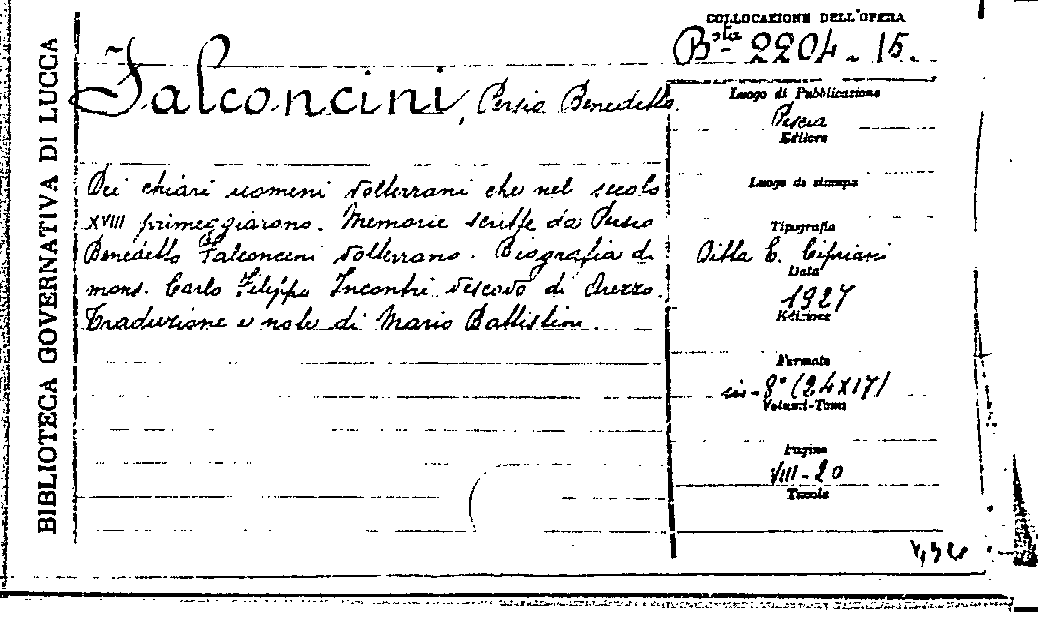 BIBLIOTECA GOVERNATIVA DI LUCCA
COLLOCAZIONE DELL'OPERA
Bsta 2204.15.
Falconcini, Persio Benedetto.
Luogo di Pubblicazione
Pescia
Editore
Dei chiari uomeni volterrani che nel secolo
XVIII primeggiarono. Memorie scritte da Persio
Benedetto Falconcini volterrano. Biografia di
mons. Carlo Filippo Incontri vescovo di Arezzo.
Traduzione e note di Mario Battistini.
Luogo di stampa
Tipografia
Ditta E. Cipriani
Data
1927
Edizione
Formato
in-8° (24x17)
Volumi-Tomi
Pagine
VIII-20
Tavole